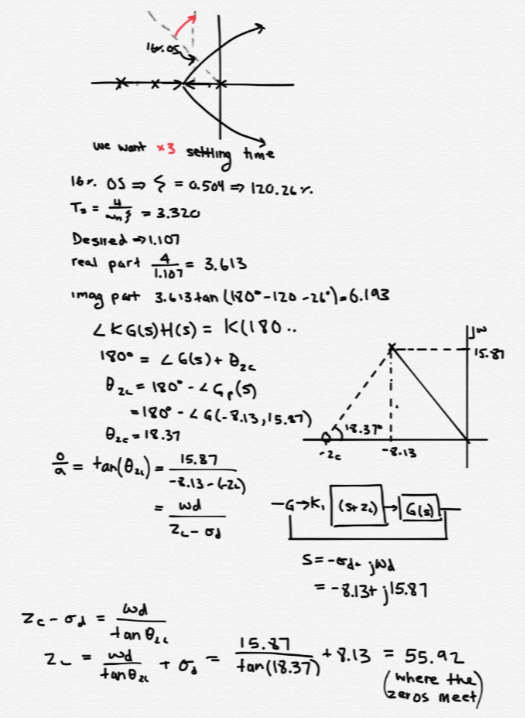 16% OS
we want x3 settling time
16% OS ⇒ ζ = 0.504 ⇒ 120.26%
Ts = 4/ωnζ = 3.320
Desired ⇒ 1.107
real part 4/1.107 = 3.613
imag part 3.613 tan (180° -120 -26°) = 6.193
∠KG(s)H(s) = K(180 ..
180° = ∠G(s) + θzc
θzc = 180° - ∠Gp(s)
= 180° - ∠G(-8.13, 15.87)
θzc = 18.37
jω
15.87
18.37°
-zc
-8.13
o/a = tan(θzc) = 15.87/-8.13-(-zc)
= ωd/zc - σd
-G → K, (s+zc) → G(s)
s = -σd + jωd
= -8.13 + j15.87
zc - σd = ωd/tan θzc
zc = ωd/tan θzc + σd = 15.87/tan(18.37) + 8.13 = 55.92
(where the
zeros meet)